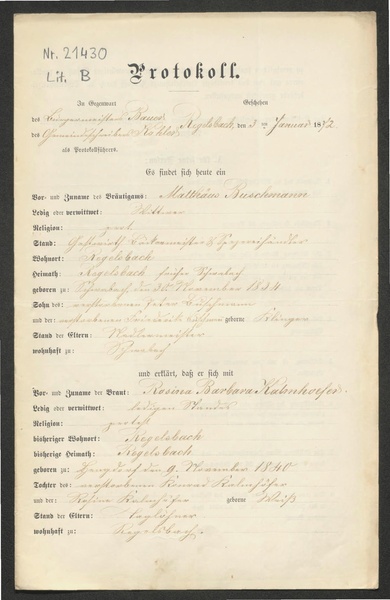 Nr. 21430
Lit. B
Protokoll.
In Gegenwart
Geschehen
des Bürgermeisters Bauer
Regelsbach, den 3 ten Januar 1872
des Gemeindschreibers Köhler
als Protokollführers.
Es findet sich heute ein
Vor- und Zuname des Bräutigams: Matthäus Buschmann
Ledig oder verwittwet: Wittwer
Religion: prot.
Stand: Gastwirth Bäckermeister & Spezereihändler
Wohnort: Regelsbach
Heimath: Regelsbach früher Schwabach
geboren zu: Schwabach den November 1834
Sohn des: verstorbenen Buschmann
und der: verstorbenen geborne Klinger
Stand der Eltern:
wohnhaft zu: Schwabach
und erklärt, daß er sich mit
Vor- und Zuname der Braut: Rosina Barbara Kalmhoefer
Ledig oder verwittwet: ledigen Standes
Religion: protest
bisheriger Wohnort: Regelsbach
bisherige Heimath: Regelsbach
geboren zu: den 9. November 1840
Tochter des: verstorbenen Konrad Kalmhöfer
und der: Rosine Kalmhöfer geborne Weiß
Stand der Eltern: Taglöhner
wohnhaft zu: Regelsbach.